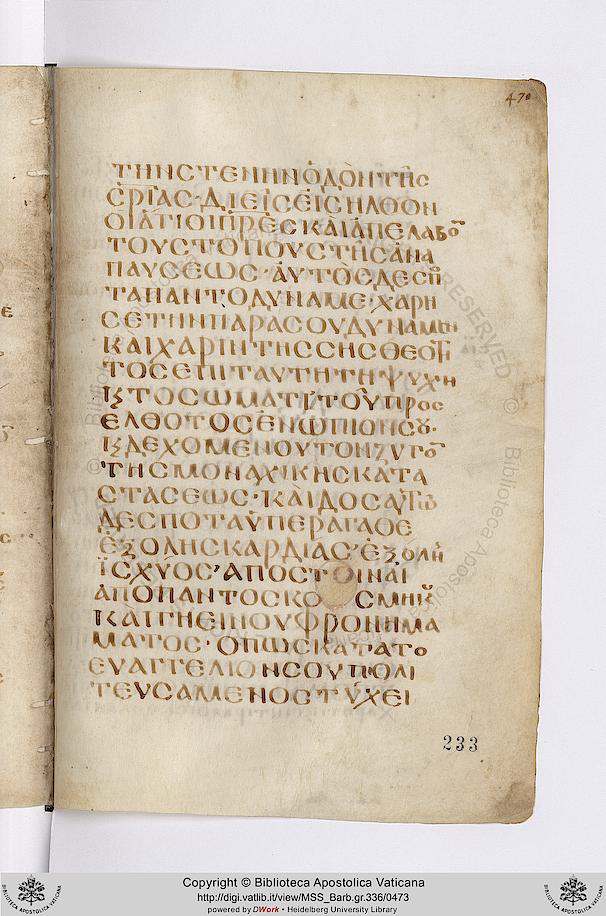 470
ΤΗΝ ΣΤΕΝΗΝ ὉΔῸΝ ΤΗ͂Σ
Ε̅Ρ̅ΙΑΣ· ΔΙ ΕΙΣ ΕΙΣΗΛΘΟΝ
ΟΙ ΑΓΙΟΙ Π̅Ρ̅ΕΣ ΚΑΙ ΑΠΕΛΑΒΟ̅
ΤΟΥΣ ΤΟΠΟΥΣ ΤΗΣ ΑΝΑ
ΠΑΥΣΕΩΣ· ΑΥΤΟΣ ΔΕΣΠ
ΤΑ ΠΑΝΤΟΔΥΝΑΜΕ· ΧΑΡΗ
ΣΕ ΤΗΝ ΠΑΡΑ ΣΟΥ ΔΥΝΑΜΙΝ
ΚΑΙ ΧΑΡΙΝ ΤΗΣ ΣΗΣ ΘΕΟΤΙ
ΤΟΣ ΕΠΙ ΤΑΥΤΗ ΤΗ ΨΥΧΗ
Ϗ ΤΟ ΣΩΜΑΤΙ ΤΟΥ ΠΡΟΣ
ΕΛΘΟΤΟΣ ΕΝΩΠΙΟΝ ΣΟΥ·
Ϗ ΔΕΧΟΜΕΝΟΥ ΤΟΝ ΖΥΓΟ̅
ΤΗΣ ΜΟΝΑΧΙΚΗΣ ΚΑΤΑ
ΣΤΑΣΕΩΣ· ΚΑΙ ΔΟΣ ΑΥΤΩ
ΔΕΣΠΟΤΑ ΥΠΕΡΑΓΑΘΕ
ΕΞ ΟΛΗΣ ΚΑΡΔΙΑΣ· ΕΞ ΟΛΗΣ
ΪΣΧΥΟΣ· ΑΠΟΣΤΟΙΝΑΙ
ΑΠΟ ΠΑΝΤΟΣ ΚΟΣΜΗΚ
ΚΑΙ ΓΗΕΙΝΟΥ ΦΡΟΝΗΜΑ
ΜΑΤΟΣ· ΟΠΩΣ ΚΑΤΑ ΤΟ
ΕΥΑΓΓΕΛΙΟΝ ΣΟΥ ΠΟΛΙ
ΤΕΥΣΑΜΕΝΟΣ ΤΥΧΕΙ
233
RESERVED ©
Biblioteca Apostolica
Copyright © Biblioteca Apostolica Vaticana
http://digi.vatlib.it/view/MSS_Barb.gr.336/0473
powered by DWork • Heidelberg University Library